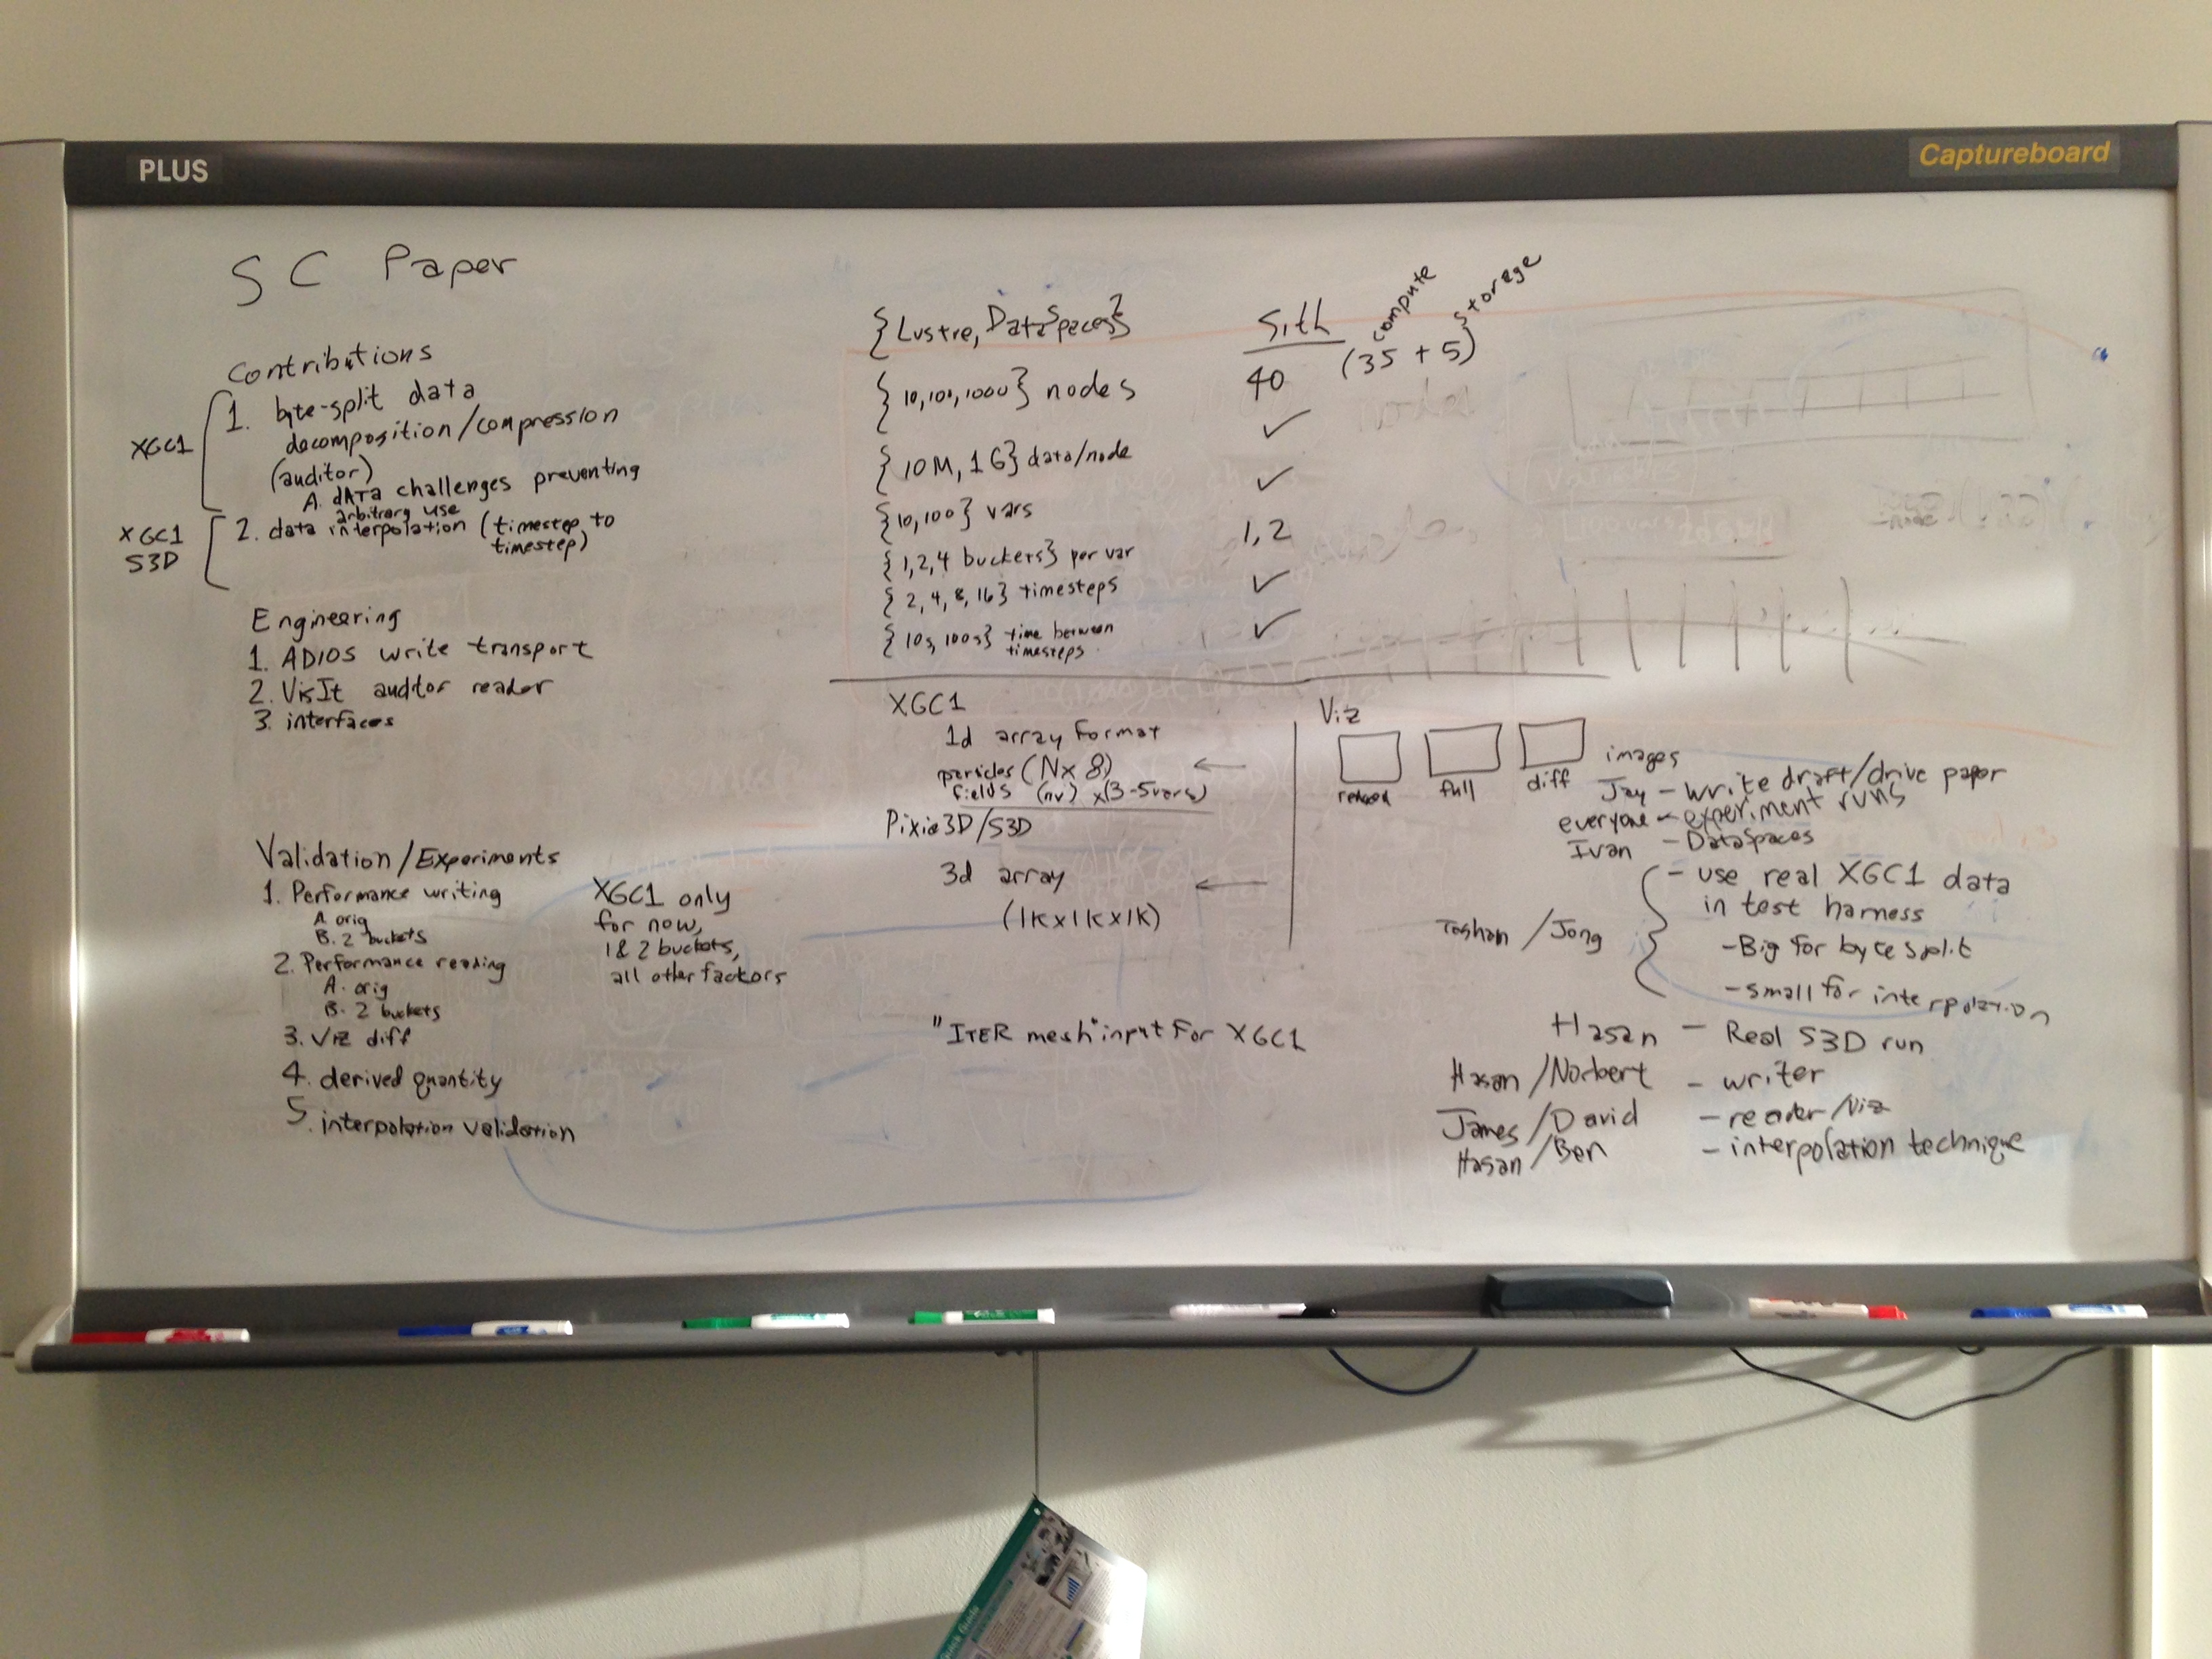 PLUS
Captureboard
SC Paper
Contributions
XGC1
1. byte-split data
decomposition/compression
(auditor)
A. dATa challenges preventing
arbitrary use
XGC1
S3D
2. data interpolation (timestep to
timestep)
Engineering
1. ADIOS write transport
2. VisIt auditor reader
3. interfaces
Validation/Experiments
1. Performance writing
A. orig
B. 2 buckets
2. Performance reading
A. orig
B. 2 buckets
3. Viz diff
4. derived quantity
5. interpolation validation
XGC1 only
for now,
1 & 2 buckets,
all other factors
{Lustre, DataSpaces}
{10, 100, 1000} nodes
{10M, 1G} data/node
{10, 100} vars
{1, 2, 4 buckets} per var
{2, 4, 8, 16} timesteps
{10s, 100s} time between
timesteps
Sith
compute
storage
40 (35 + 5)
✓
✓
1, 2
✓
✓
XGC1
1d array format
(N x 8)
fields (nv) x (3-5 vars)
Pixie3D/S3D
3d array
(1K x 1K x 1K)
"ITER mesh" input for XGC1
Viz
full
diff
images
Jay - write draft/drive paper
everyone - experiment runs
Ivan - DataSpaces
/Jong
- use real XGC1 data
in test harness
- Big for byte split
- small for interpolation
Hasan - Real S3D run
Hasan/Norbert - writer
James/David - reader/viz
Hasan/Ben - interpolation technique